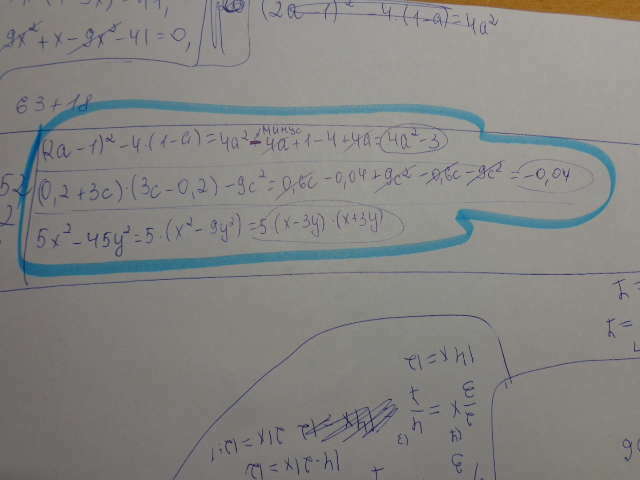 9x²+x-9x²-41=0,
(2a-1)²-4·(1-a)=4a²
63+18
(2a-1)²-4·(1-a)=4a²-4a+1-4+4a=4a²-3
минус
52
(0,2+3c)·(3c-0,2)-9c²=0,6c-0,04+9c²-0,6c-9c²=-0,04
2
5x²-45y²=5·(x²-9y²)=5·(x-3y)·(x+3y)
14x=12
14-21x=12